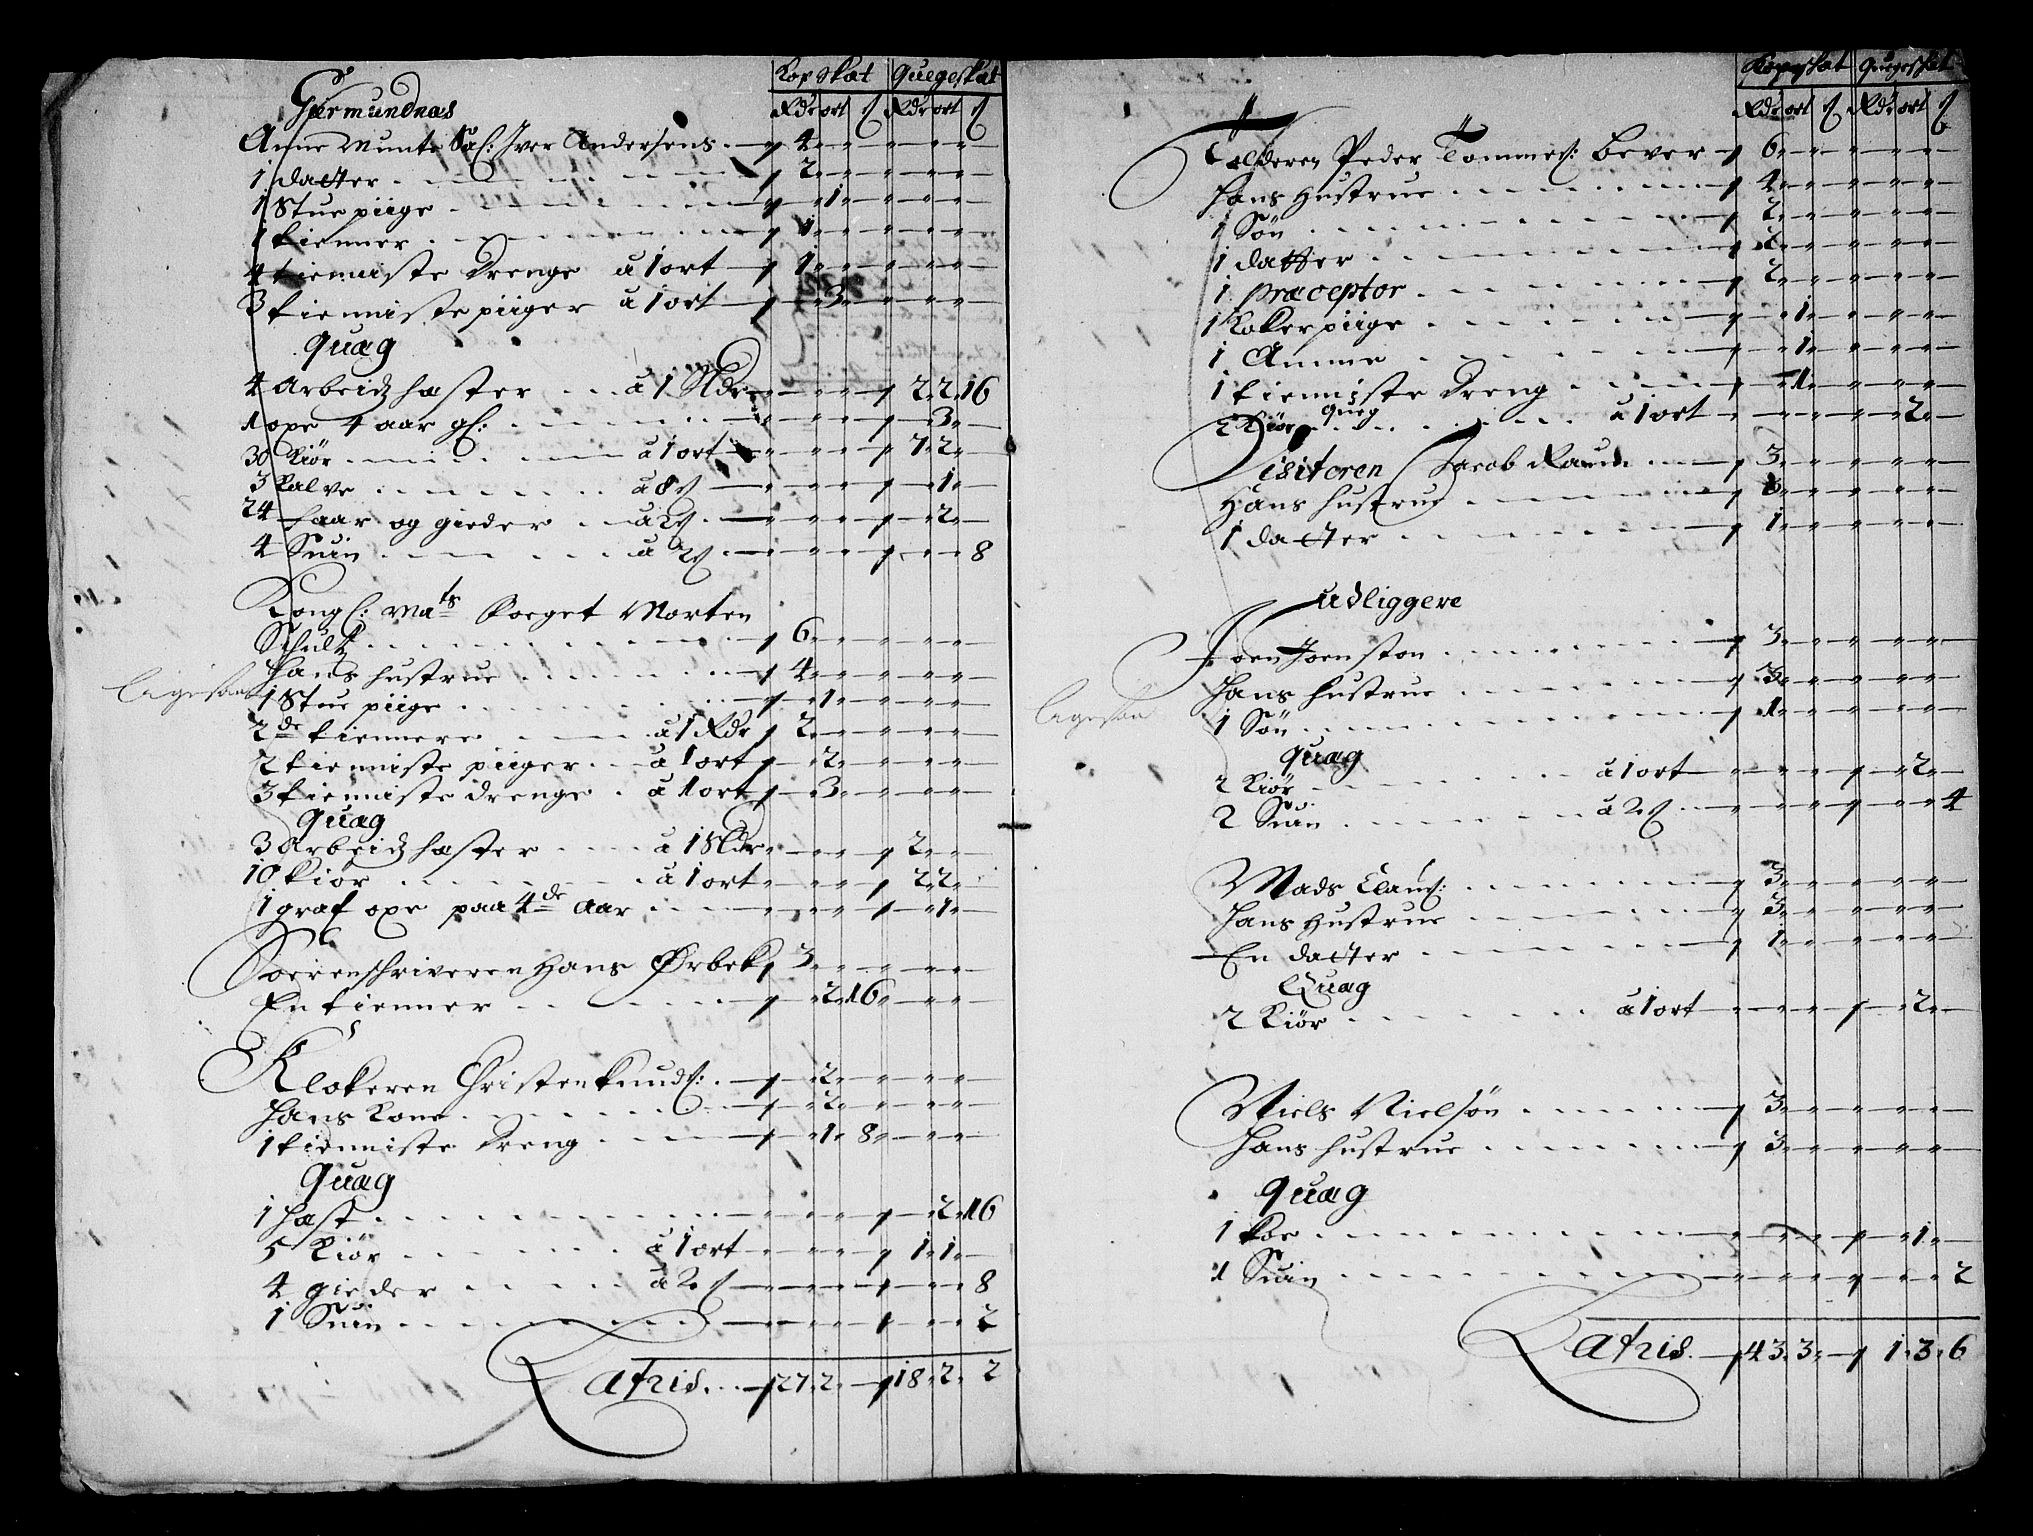 Kopskat Quegeskat
Rdr ort ß Rdr ort ß
Germundnæs
Anne Munte Sal: Iver Andersens 4
1 datter 2
1 Stue piige 1
1 tienner 1
4 tieniste drenge a 1 ort 1
3 tienniste piiger a 1 ort 3
Quæg
4 Arbeidz hæster a 1 Sldr 2 2 16
1 oxe 4 aar gl: 3
30 Kiør a 1 ort 7 2
3 Kalve a 8 ß 1
24 faar og gieder a 2 ß 2
4 Suin a 2 ß 8
Kongl: Mats foeget Morten
Schultz 6
Hans hustrue 4
ligesaa
1 Stue piige 1
2de tiennere a 1 Rdr 2
2 tienniste piiger a 1 ort 2
3 tienniste drenge a 1 ort 3
Quæg
3 Arbeidz hæster a 1 Sldr 2
10 Kiør a 1 ort 2 2
1 graf oxe paa 4de aar 1
Soerenschriveren Hans Ørbek 3
En tienner 2 16
Klokeren Christen Knuds: 2
Hans Kone 2
1 tienniste dreng 1 8
Quæg
1 hæst 2 16
5 Kiør a 1 ort 1 1
4 gieder a 2 ß 8
1 Suin 2
Latris 27 2 18 2 2
Kopskat Quegeskat
Rdr ort ß Rdr ort ß
Tolderen Peder Tommes: Bever 6
Hans Hustrue 4
1 Søn 2
1 datter 2
1 Præceptor 2
1 Koke piige 1
1 Amme 1
1 tienniste dreng 1
Queg
2 Kiør a 1 ort 2
Visiteren Jacob Raum 3
Hans hustrue
1 datter 1
Udliggere
Joen Joenston 3
Hans hustrue 3
ligesaa
1 Søn 1
Quæg
2 Kiør a 1 ort 2
2 Suin a 2 ß 4
Mads Claus: 3
Hans Hustrue 3
En datter 1
Quæg
2 Kiør a 1 ort 2
Niels Nielsøn 3
Hans hustrue 3
Quæg
1 Koe 1
1 Suin 2
Latris 43 3 1 3 6